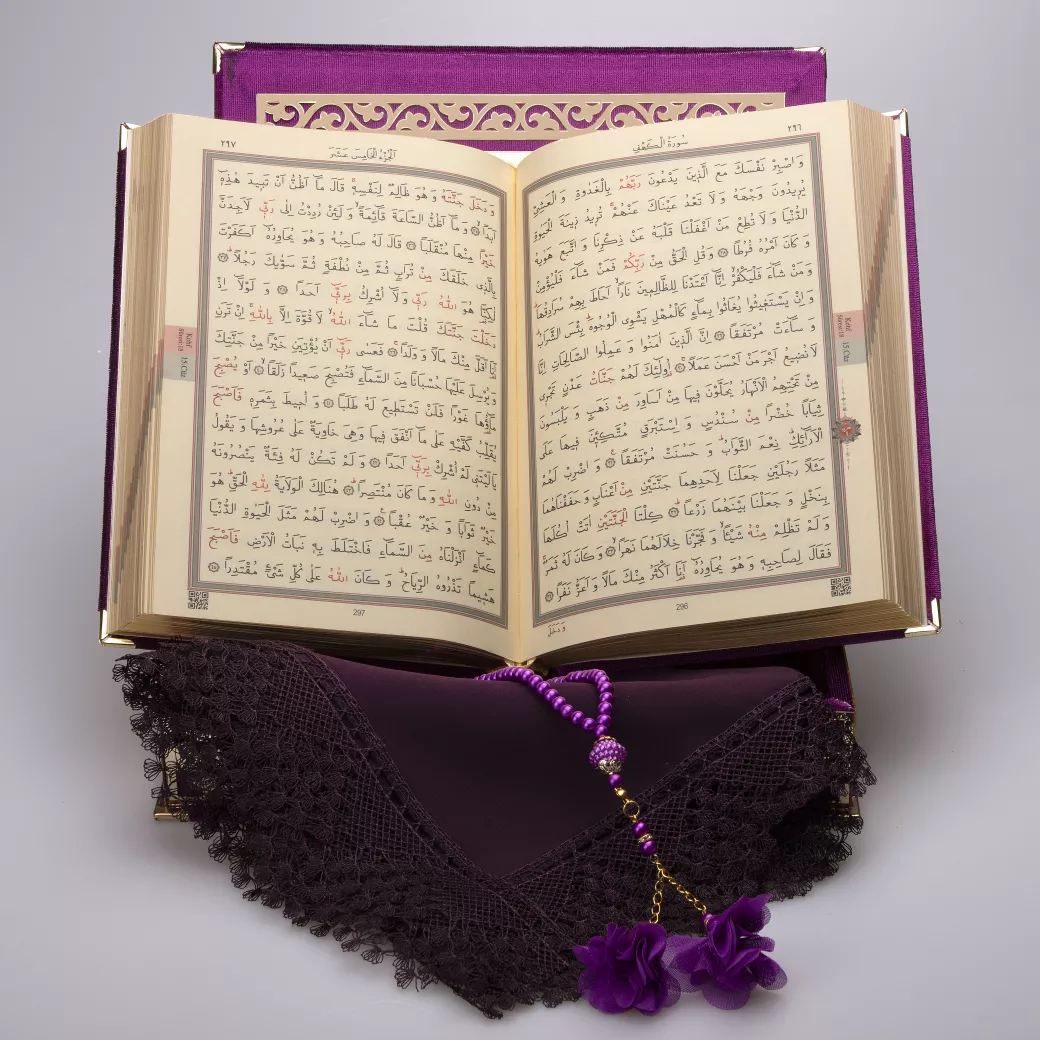 سُورَةُ الْكَهْفِ ٢٩٦
وَ اصْبِرْ نَفْسَكَ مَعَ الَّذِينَ يَدْعُونَ رَبَّهُمْ بِالْغَدٰوةِ وَ الْعَشِيِّ
يُرِيدُونَ وَجْهَهُ وَ لَا تَعْدُ عَيْنَاكَ عَنْهُمْ تُرِيدُ زِينَةَ الْحَيٰوةِ
الدُّنْيَا وَ لَا تُطِعْ مَنْ اَغْفَلْنَا قَلْبَهُ عَنْ ذِكْرِنَا وَ اتَّبَعَ هَوٰيهُ
وَ كَانَ اَمْرُهُ فُرُطًا ۞ وَ قُلِ الْحَقُّ مِنْ رَبِّكُمْ فَمَنْ شَاءَ فَلْيُؤْمِنْ
وَ مَنْ شَاءَ فَلْيَكْفُرْ اِنَّا اَعْتَدْنَا لِلظَّالِمِينَ نَارًا اَحَاطَ بِهِمْ سُرَادِقُهَا
وَ اِنْ يَسْتَغِيثُوا يُغَاثُوا بِمَاءٍ كَالْمُهْلِ يَشْوِي الْوُجُوهَ بِئْسَ الشَّرَابُ
وَ سَاءَتْ مُرْتَفَقًا ۞ اِنَّ الَّذِينَ اٰمَنُوا وَ عَمِلُوا الصَّالِحَاتِ اِنَّا
لَا نُضِيعُ اَجْرَ مَنْ اَحْسَنَ عَمَلًا ۞ اُولٰئِكَ لَهُمْ جَنَّاتُ عَدْنٍ تَجْرِي
مِنْ تَحْتِهِمُ الْاَنْهَارُ يُحَلَّوْنَ فِيهَا مِنْ اَسَاوِرَ مِنْ ذَهَبٍ وَ يَلْبَسُونَ
ثِيَابًا خُضْرًا مِنْ سُنْدُسٍ وَ اِسْتَبْرَقٍ مُتَّكِئِينَ فِيهَا عَلَى
الْاَرَائِكِ نِعْمَ الثَّوَابُ وَ حَسُنَتْ مُرْتَفَقًا ۞ وَ اضْرِبْ لَهُمْ
مَثَلًا رَجُلَيْنِ جَعَلْنَا لِاَحَدِهِمَا جَنَّتَيْنِ مِنْ اَعْنَابٍ وَ حَفَفْنَاهُمَا
بِنَخْلٍ وَ جَعَلْنَا بَيْنَهُمَا زَرْعًا ۞ كِلْتَا الْجَنَّتَيْنِ اٰتَتْ اُكُلَهَا
وَ لَمْ تَظْلِمْ مِنْهُ شَيْئًا وَ فَجَّرْنَا خِلَالَهُمَا نَهَرًا ۞ وَ كَانَ لَهُ ثَمَرٌ
فَقَالَ لِصَاحِبِهِ وَ هُوَ يُحَاوِرُهُ اَنَا اَكْثَرُ مِنْكَ مَالًا وَ اَعَزُّ نَفَرًا ۞
وَ دَخَلَ
296
Kehf
Sûresi:18
15.Cüz
٢٩٧ اَلْجُزْءُ الْخَامِسَ عَشَرَ
وَ دَخَلَ جَنَّتَهُ وَ هُوَ ظَالِمٌ لِنَفْسِهِ قَالَ مَا اَظُنُّ اَنْ تَبِيدَ هٰذِهِ
اَبَدًا ۞ وَ مَا اَظُنُّ السَّاعَةَ قَائِمَةً وَ لَئِنْ رُدِدْتُ اِلٰى رَبِّي لَاَجِدَنَّ
خَيْرًا مِنْهَا مُنْقَلَبًا ۞ قَالَ لَهُ صَاحِبُهُ وَ هُوَ يُحَاوِرُهُ اَكَفَرْتَ
بِالَّذِي خَلَقَكَ مِنْ تُرَابٍ ثُمَّ مِنْ نُطْفَةٍ ثُمَّ سَوّٰيكَ رَجُلًا ۞
لٰكِنَّا هُوَ اللّٰهُ رَبِّي وَ لَا اُشْرِكُ بِرَبِّي اَحَدًا ۞ وَ لَوْلَا اِذْ
دَخَلْتَ جَنَّتَكَ قُلْتَ مَا شَاءَ اللّٰهُ لَا قُوَّةَ اِلَّا بِاللّٰهِ اِنْ تَرَنِ
اَنَا اَقَلَّ مِنْكَ مَالًا وَ وَلَدًا ۞ فَعَسٰى رَبِّي اَنْ يُؤْتِيَنِ خَيْرًا مِنْ جَنَّتِكَ
وَ يُرْسِلَ عَلَيْهَا حُسْبَانًا مِنَ السَّمَاءِ فَتُصْبِحَ صَعِيدًا زَلَقًا ۞ اَوْ يُصْبِحَ
مَاؤُهَا غَوْرًا فَلَنْ تَسْتَطِيعَ لَهُ طَلَبًا ۞ وَ اُحِيطَ بِثَمَرِهِ فَاَصْبَحَ
يُقَلِّبُ كَفَّيْهِ عَلٰى مَا اَنْفَقَ فِيهَا وَ هِيَ خَاوِيَةٌ عَلٰى عُرُوشِهَا وَ يَقُولُ
يَالَيْتَنِي لَمْ اُشْرِكْ بِرَبِّي اَحَدًا ۞ وَ لَمْ تَكُنْ لَهُ فِئَةٌ يَنْصُرُونَهُ
مِنْ دُونِ اللّٰهِ وَ مَا كَانَ مُنْتَصِرًا ۞ هُنَالِكَ الْوَلَايَةُ لِلّٰهِ الْحَقِّ هُوَ
خَيْرٌ ثَوَابًا وَ خَيْرٌ عُقْبًا ۞ وَ اضْرِبْ لَهُمْ مَثَلَ الْحَيٰوةِ الدُّنْيَا
كَمَاءٍ اَنْزَلْنَاهُ مِنَ السَّمَاءِ فَاخْتَلَطَ بِهِ نَبَاتُ الْاَرْضِ فَاَصْبَحَ
هَشِيمًا تَذْرُوهُ الرِّيَاحُ وَ كَانَ اللّٰهُ عَلٰى كُلِّ شَيْءٍ مُقْتَدِرًا ۞
297
Kehf
Sûresi:18
15.Cüz